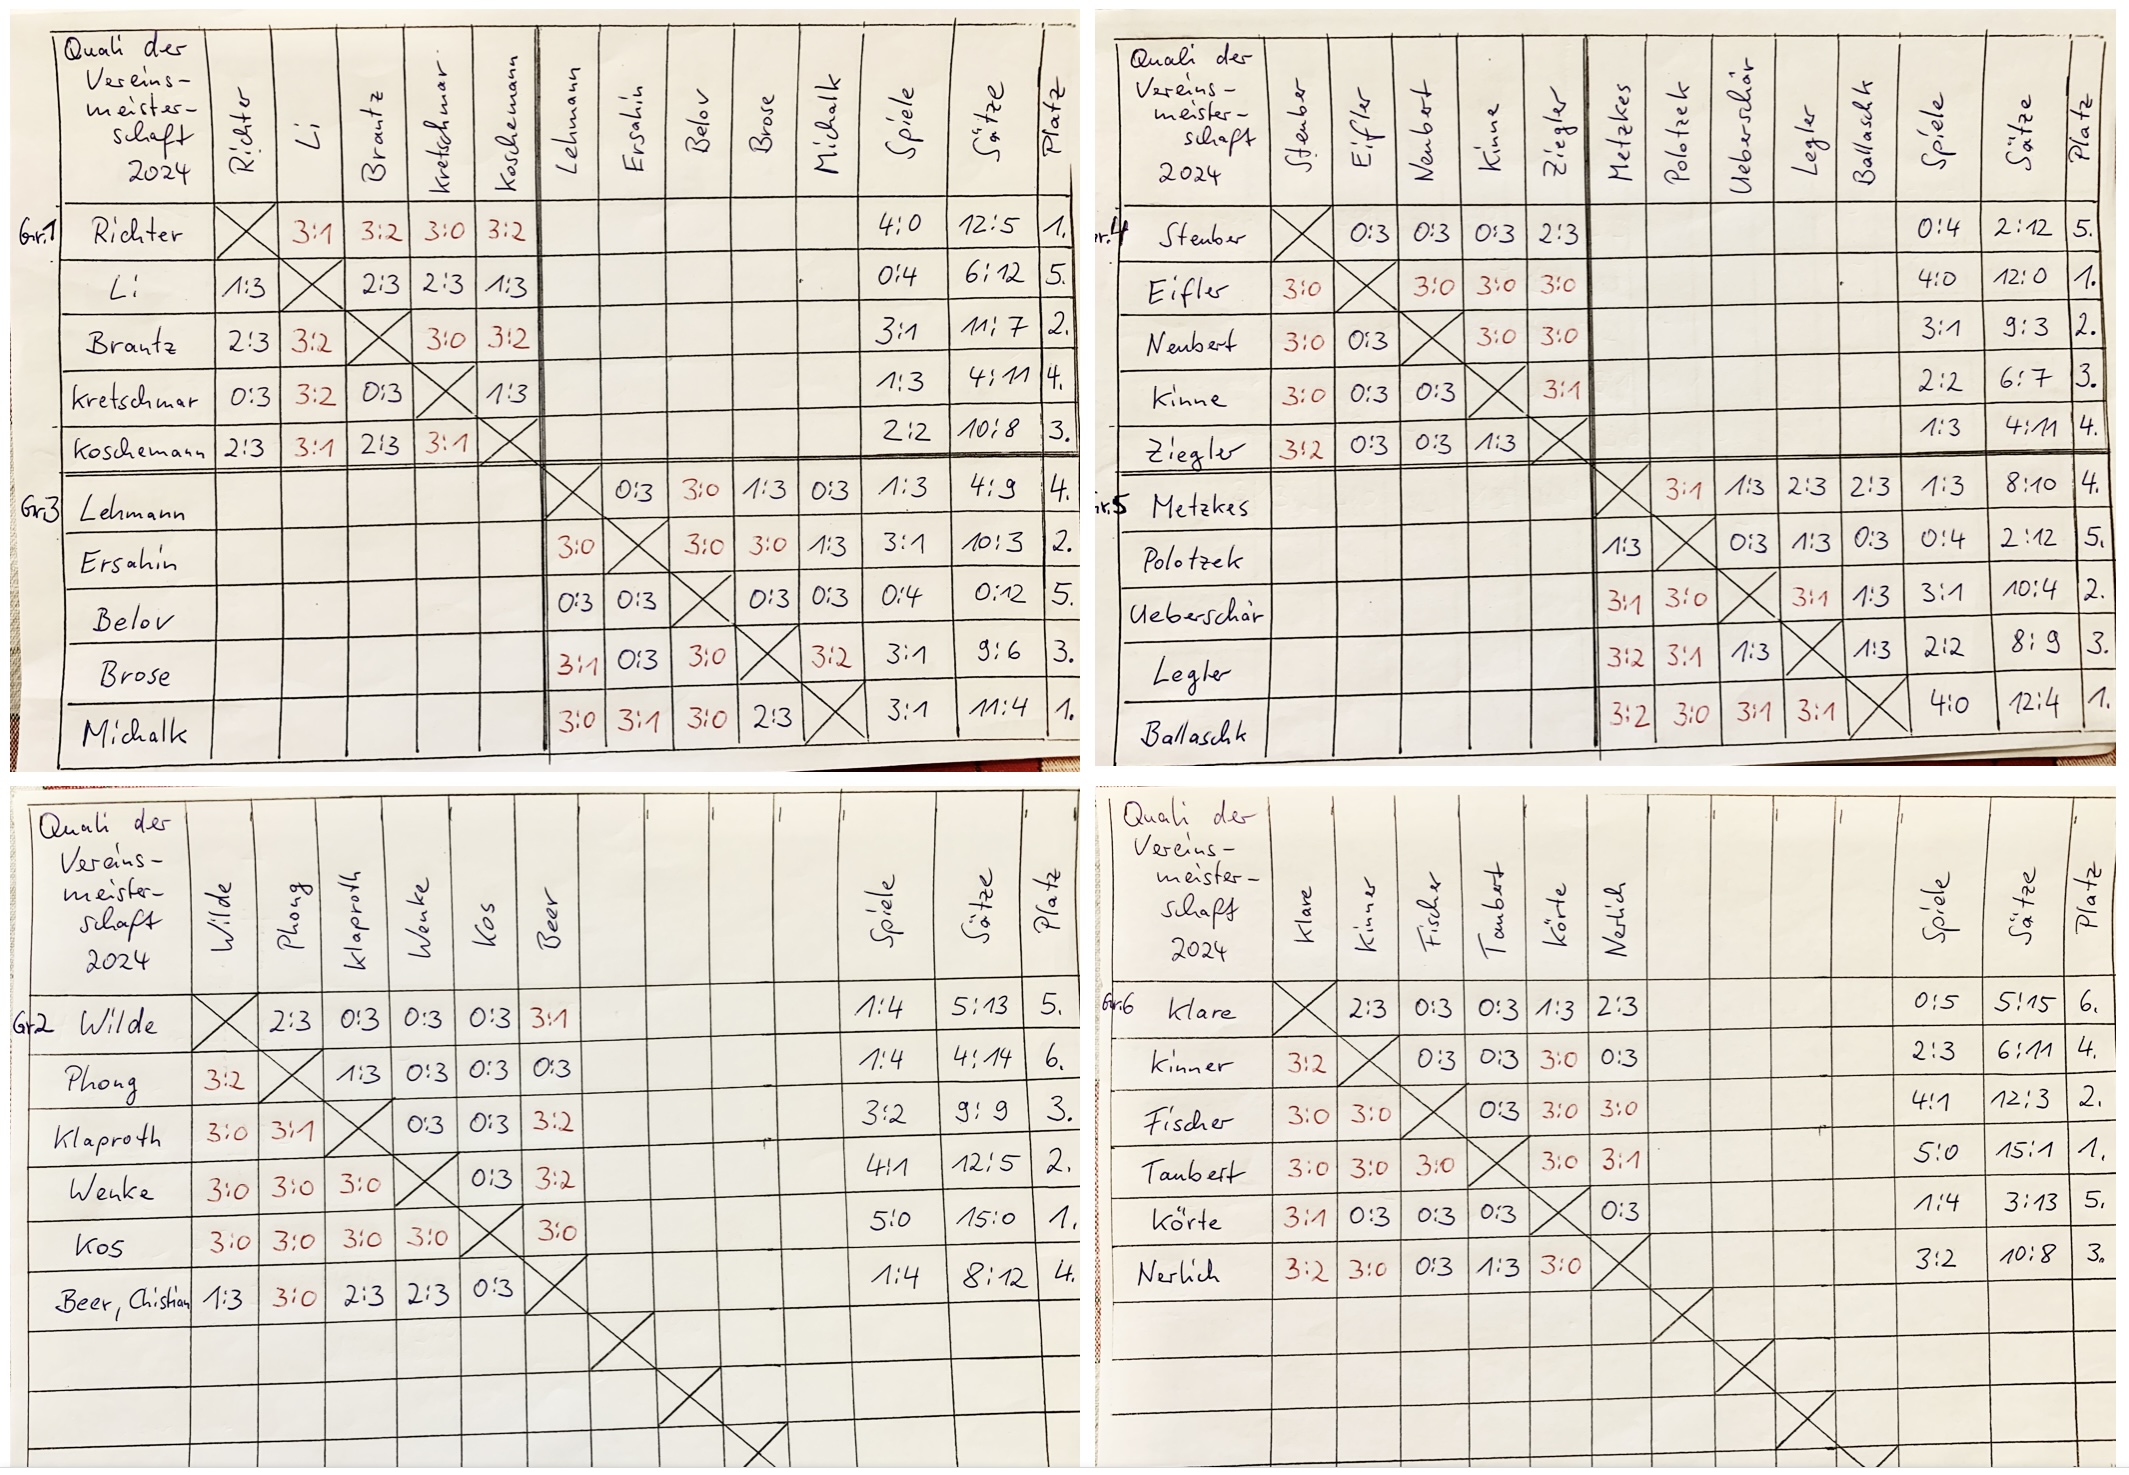 Quali der
Vereins-
meister-
schaft
2024
Richter
Li
Brantz
Kretschmar
Koschemann
Lehmann
Ersahin
Belov
Brose
Michalk
Spiele
Sätze
Platz
Gr.1 Richter 3:1 3:2 3:0 3:2 4:0 12:5 1.
Li 1:3 2:3 2:3 1:3 0:4 6:12 5.
Brantz 2:3 3:2 3:0 3:2 3:1 11:7 2.
Kretschmar 0:3 3:2 0:3 1:3 1:3 4:11 4.
Koschemann 2:3 3:1 2:3 3:1 2:2 10:8 3.
Gr.3 Lehmann 0:3 3:0 1:3 0:3 1:3 4:9 4.
Ersahin 3:0 3:0 3:0 1:3 3:1 10:3 2.
Belov 0:3 0:3 0:3 0:3 0:4 0:12 5.
Brose 3:1 0:3 3:0 3:2 3:1 9:6 3.
Michalk 3:0 3:1 3:0 2:3 3:1 11:4 1.
Quali der
Vereins-
meister-
schaft
2024
Stenber
Eifler
Neubert
Kinne
Ziegler
Metzkes
Polotzek
Ueberschär
Legler
Ballaschk
Spiele
Sätze
Platz
r.4 Stenber 0:3 0:3 0:3 2:3 0:4 2:12 5.
Eifler 3:0 3:0 3:0 3:0 4:0 12:0 1.
Neubert 3:0 0:3 3:0 3:0 3:1 9:3 2.
Kinne 3:0 0:3 0:3 3:1 2:2 6:7 3.
Ziegler 3:2 0:3 0:3 1:3 1:3 4:11 4.
r.5 Metzkes 3:1 1:3 2:3 2:3 1:3 8:10 4.
Polotzek 1:3 0:3 1:3 0:3 0:4 2:12 5.
Ueberschär 3:1 3:0 3:1 1:3 3:1 10:4 2.
Legler 3:2 3:1 1:3 1:3 2:2 8:9 3.
Ballaschk 3:2 3:0 3:1 3:1 4:0 12:4 1.
Quali der
Vereins-
meister-
schaft
2024
Wilde
Phong
Klaproth
Wenke
Kos
Beer
Spiele
Sätze
Platz
Gr.2 Wilde 2:3 0:3 0:3 0:3 3:1 1:4 5:13 5.
Phong 3:2 1:3 0:3 0:3 0:3 1:4 4:14 6.
Klaproth 3:0 3:1 0:3 0:3 3:2 3:2 9:9 3.
Wenke 3:0 3:0 3:0 0:3 3:2 4:1 12:5 2.
Kos 3:0 3:0 3:0 3:0 3:0 5:0 15:0 1.
Beer, Chistian 1:3 3:0 2:3 2:3 0:3 1:4 8:12 4.
Quali der
Vereins-
meister-
schaft
2024
Klare
Kinner
Fischer
Taubert
Körte
Nerlich
Spiele
Sätze
Platz
Gr.6 Klare 2:3 0:3 0:3 1:3 2:3 0:5 5:15 6.
Kinner 3:2 0:3 0:3 3:0 0:3 2:3 6:11 4.
Fischer 3:0 3:0 0:3 3:0 3:0 4:1 12:3 2.
Taubert 3:0 3:0 3:0 3:0 3:1 5:0 15:1 1.
Körte 3:1 0:3 0:3 0:3 0:3 1:4 3:13 5.
Nerlich 3:2 3:0 0:3 1:3 3:0 3:2 10:8 3.